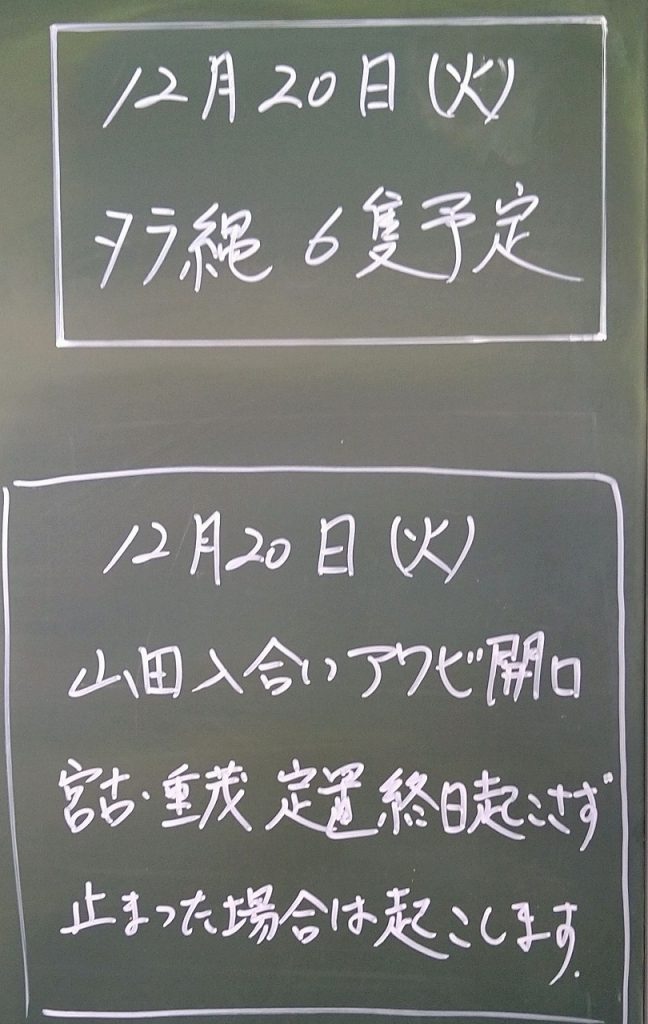 12月20日(火)
タラ縄 6隻予定
12月20日(火)
山田入合いアワビ開口
宮古・重茂 定置終日起こさず
止まった場合は起こします.